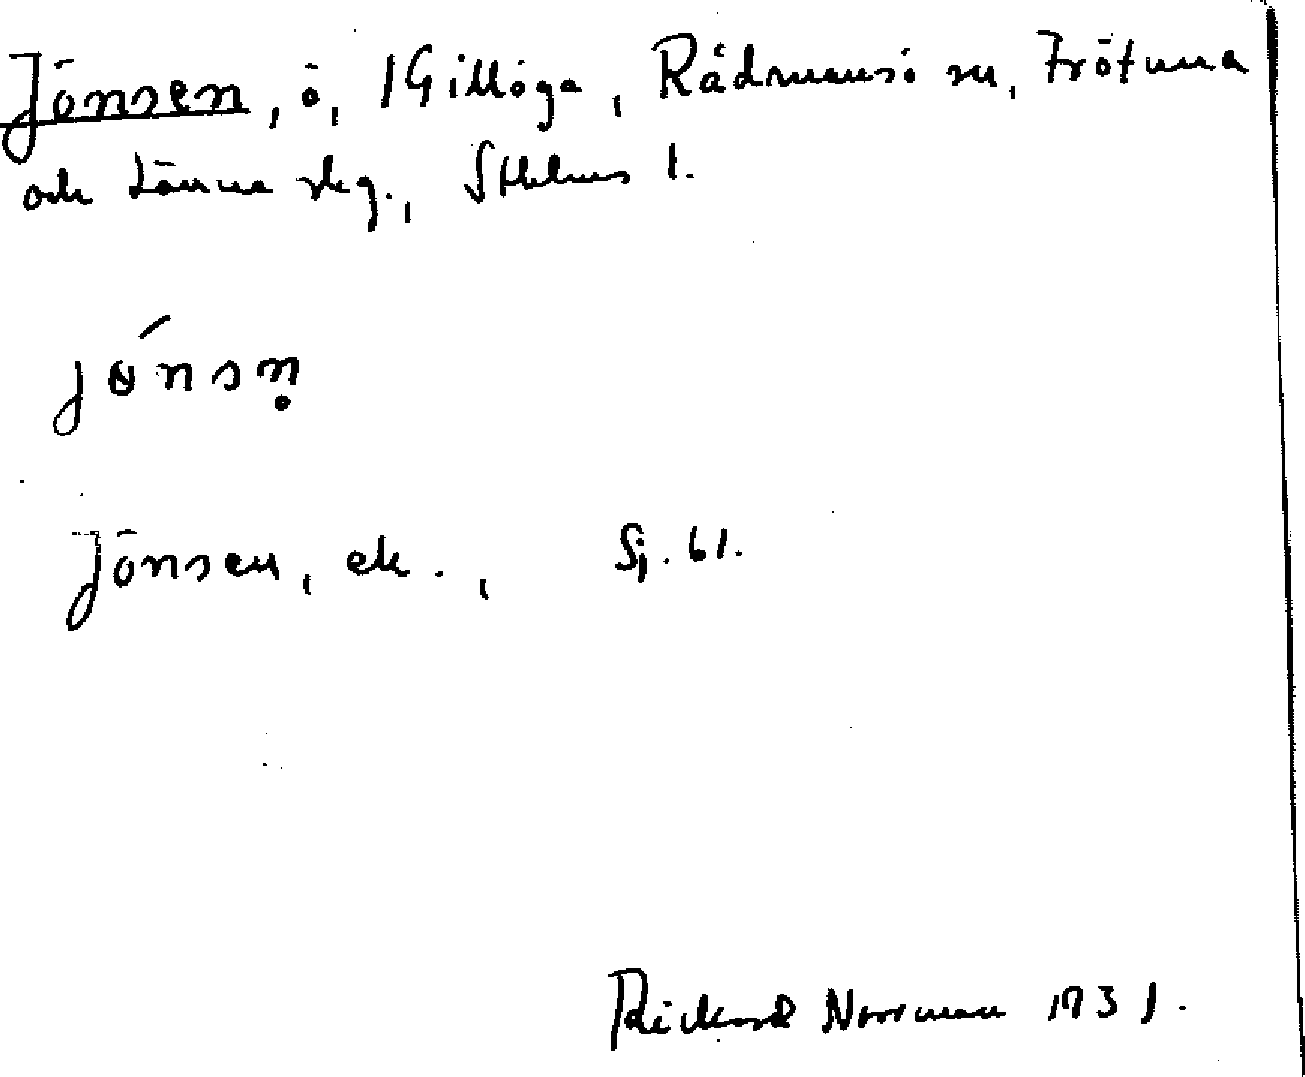 Jönsen, ö, i Gillöga, Rådmansö sn, Frötuna
och Länna skg., Sthlms l.
jɵ́nsṇ
Jönsen, ek., Sj. 61.
Rickard Norrman 1931.